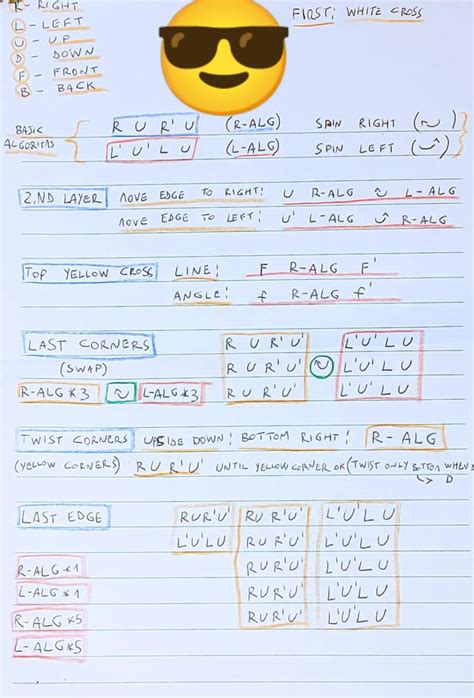 R - RIGHT
L - LEFT
U - UP
D - DOWN
F - FRONT
B - BACK
FIRST: WHITE CROSS
BASIC ALGORITMS
R U R' U (R-ALG) SPIN RIGHT
L' U' L U (L-ALG) SPIN LEFT
2.ND LAYER MOVE EDGE TO RIGHT: U R-ALG L-ALG
MOVE EDGE TO LEFT: U' L-ALG R-ALG
TOP YELLOW CROSS LINE: F R-ALG F'
ANGLE: f R-ALG f'
LAST CORNERS (SWAP)
R-ALG*3 L-ALG*3
R U R' U' L' U' L U
R U R' U' L' U' L U
R U R' U' L' U' L U
TWIST CORNERS UPSIDE DOWN! BOTTOM RIGHT! R-ALG
(YELLOW CORNERS) R U R' U' UNTIL YELLOW CORNER OK (TWIST ONLY BOTTOM WHEN
D
LAST EDGE
R U R' U' R U R' U' L' U' L U
L' U' L U R U R' U' L' U' L U
R U R' U' L' U' L U
R U R' U' L' U' L U
R U R' U' L' U' L U
R-ALG*1
L-ALG*1
R-ALG*5
L-ALG*5